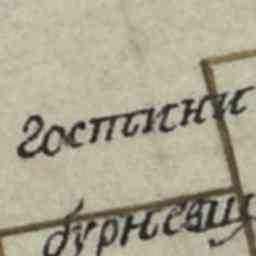 гостини
бурневиц